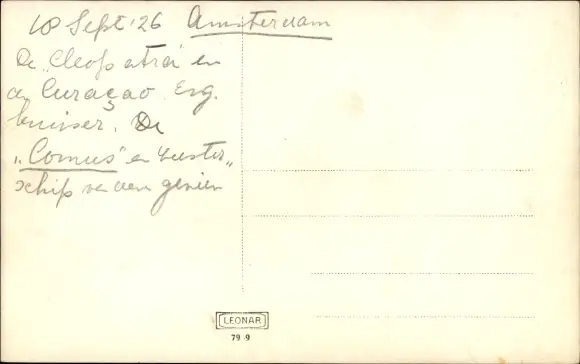 10 Sept '26 Amsterdam
De „Cleopatra" en
de Curaçao. Eng.
kruiser. De
„Comus" en zuster„
schip van den genien
LEONAR
79 9